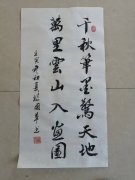 千秋筆墨驚天地
萬里雲山入畫圖